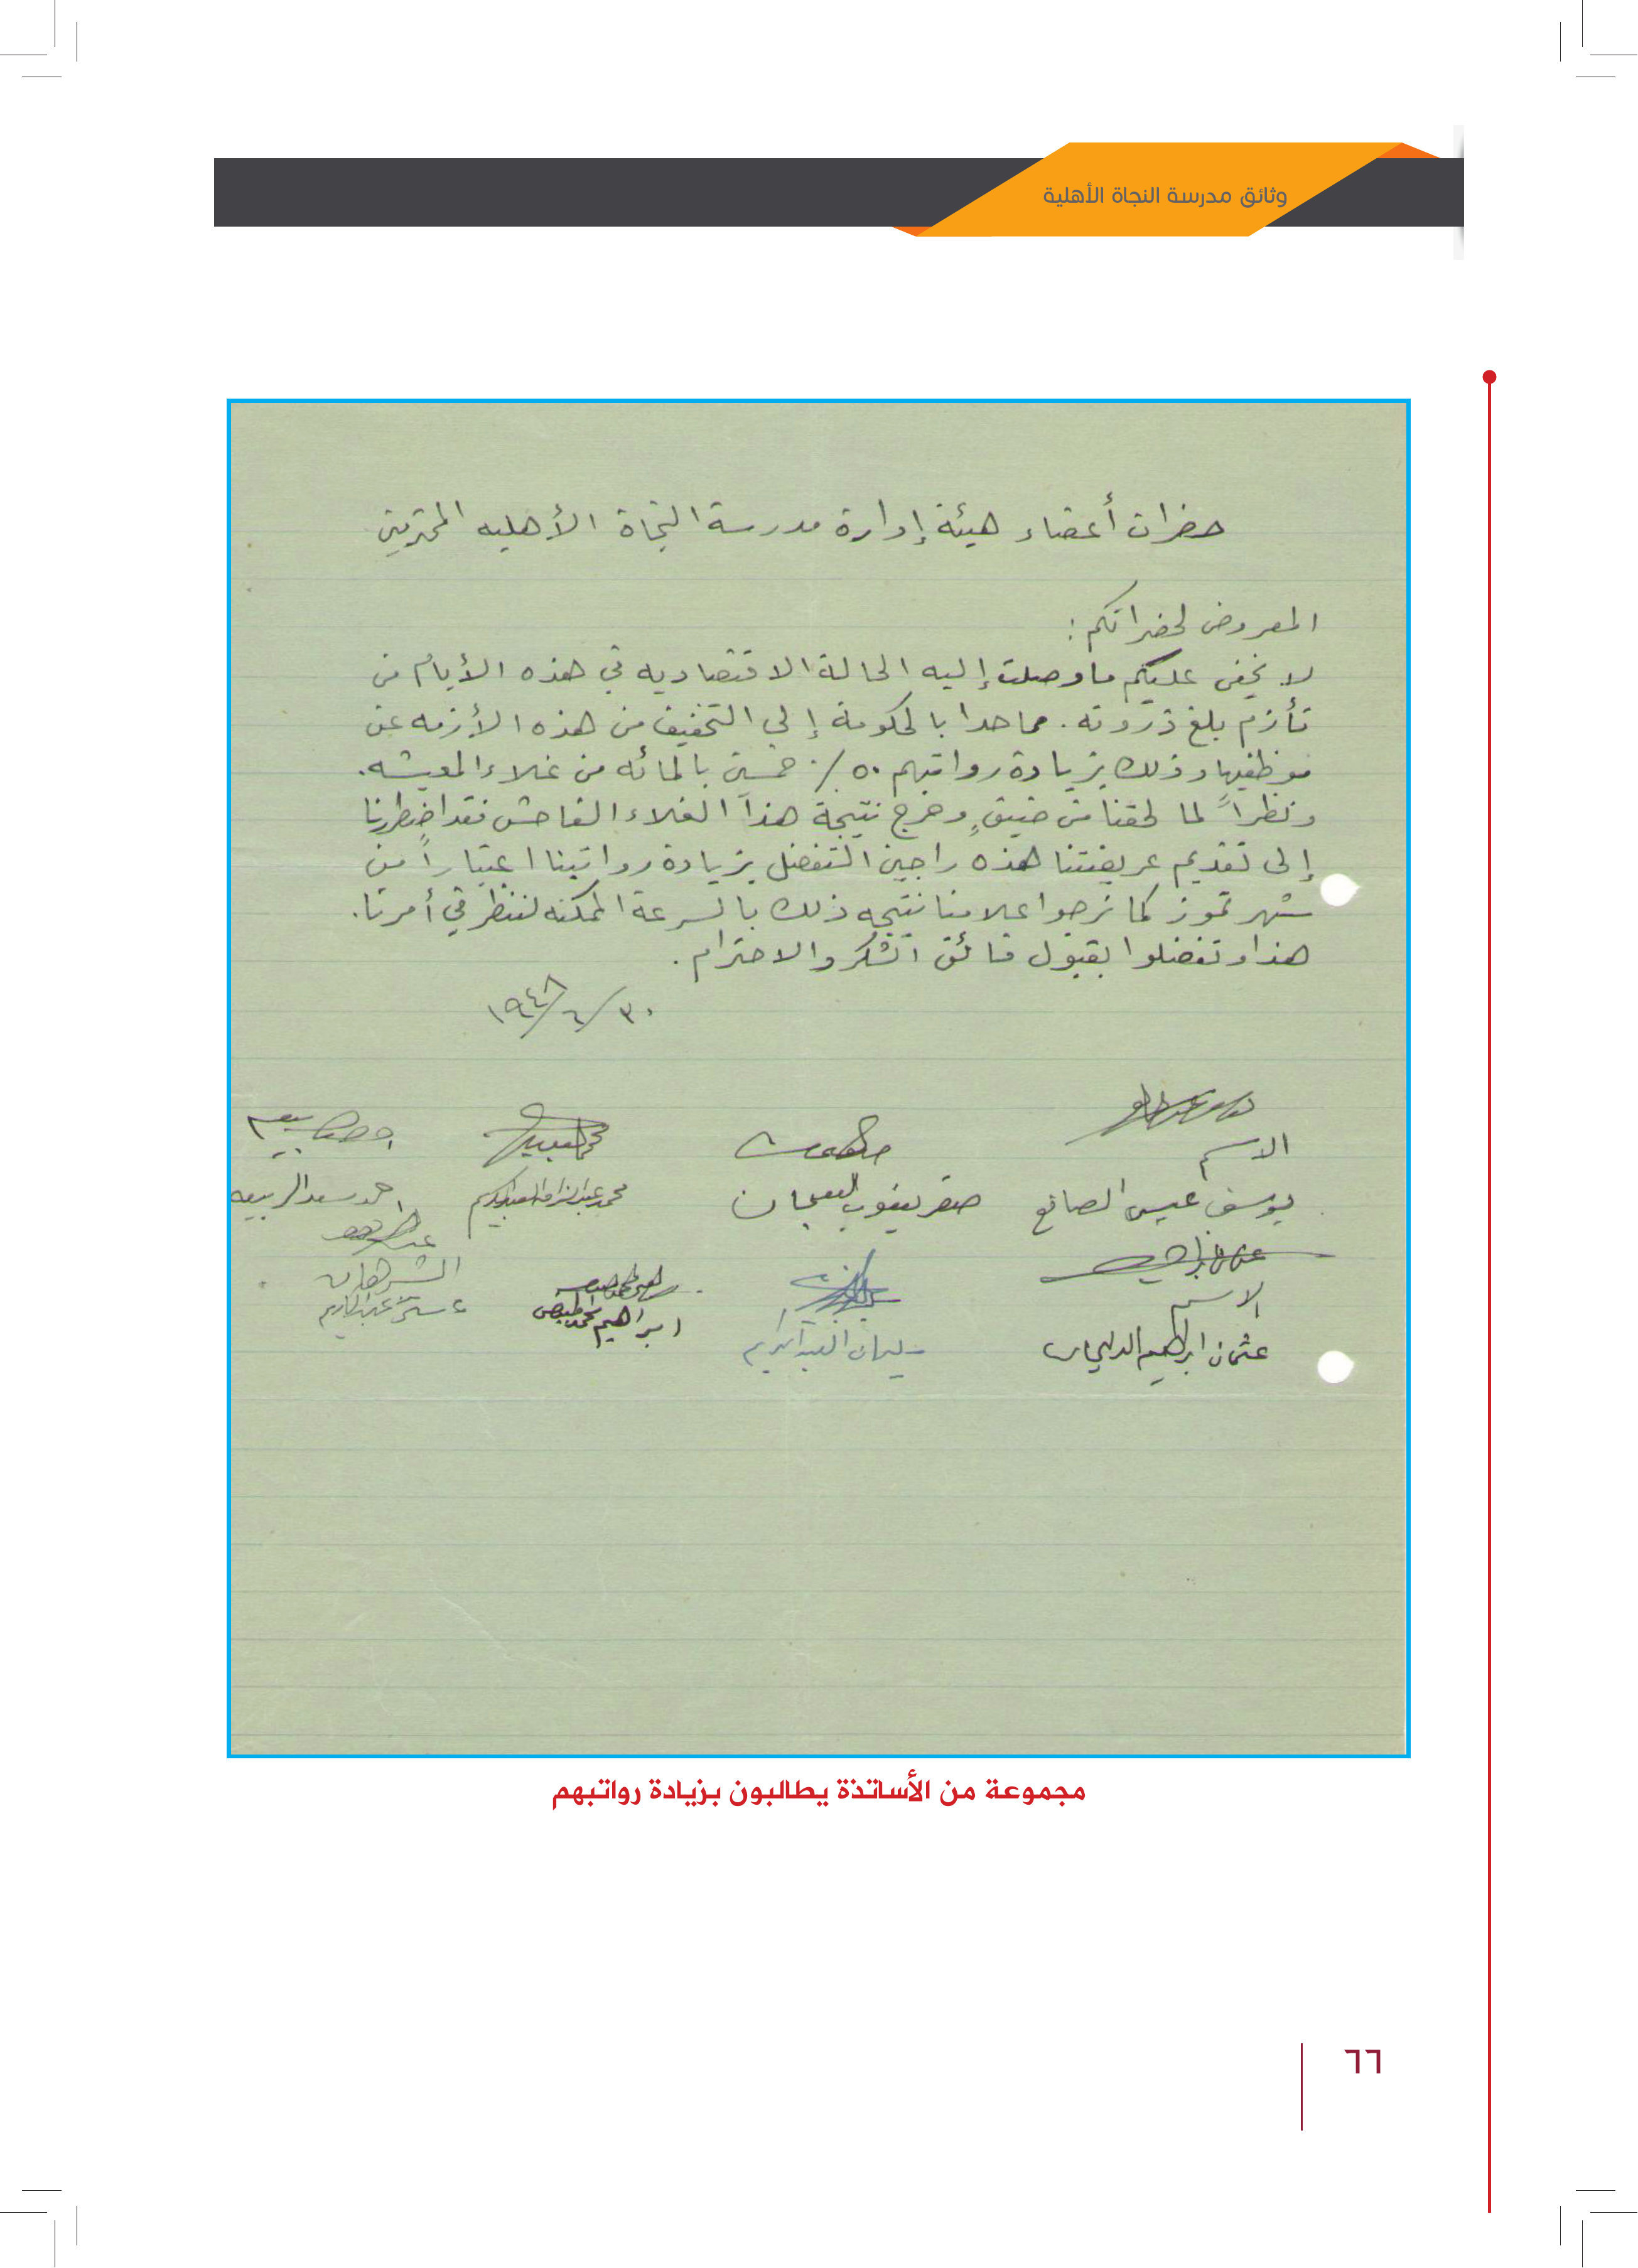 وثائق مدرسة النجاة الأهلية
حضرات أعضاء هيئة إدارة مدرسة النجاة الأهليه المحترمين
المعروض لحضراتكم :
لا يخفى عليكم ما وصلت إليه الحالة الاقتصاديه في هذه الأيام من
تأزم بلغ ذروته . مما حدا بالحكومة إلى التخفيف من هذه الأزمه عن
موظفيها وذلك بزيادة رواتبهم ٥٠ ٪ خمسين بالمائه من غلاء المعيشه .
ونظراً لما لحقنا من ضيقٍ وحرج نتيجة هذا الغلاء الفاحش فقد اضطررنا
إلى تقديم عريضتنا هذه راجين التفضل بزيادة رواتبنا اعتباراً من
شهر تموز كما نرجو اعلامنا نتيجه ذلك بالسرعة الممكنه لننظر في أمرنا .
هذا وتفضلوا بقبول فائق الشكر والاحترام .
٣٠/٦/١٩٤٨
الاسم
يوسف عيسى الصانع صقر يعقوب محمد احمد سعد الربيعه
الشرهان
الاسم
عثمان ابراهيم سليمان العبدالكريم ابراهيم محمد
مجموعة من الأساتذة يطالبون بزيادة رواتبهم
٦٦